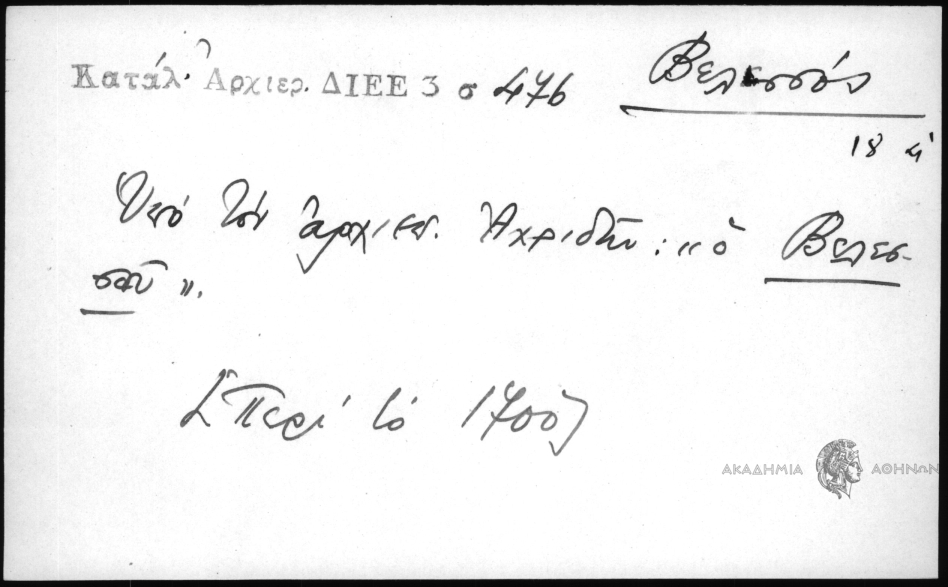 Κατάλ. Ἀρχιερ. ΔΙΕΕ 3 σ 476
Βελεσσόν
18 α'
Ὑπό τόν ἀρχιεπ. Ἀχριδῶν: "ὁ Βελεσ-
σοῦ".
[Περί τό 1700]
ΑΚΑΔΗΜΙΑ ΑΘΗΝΩΝ